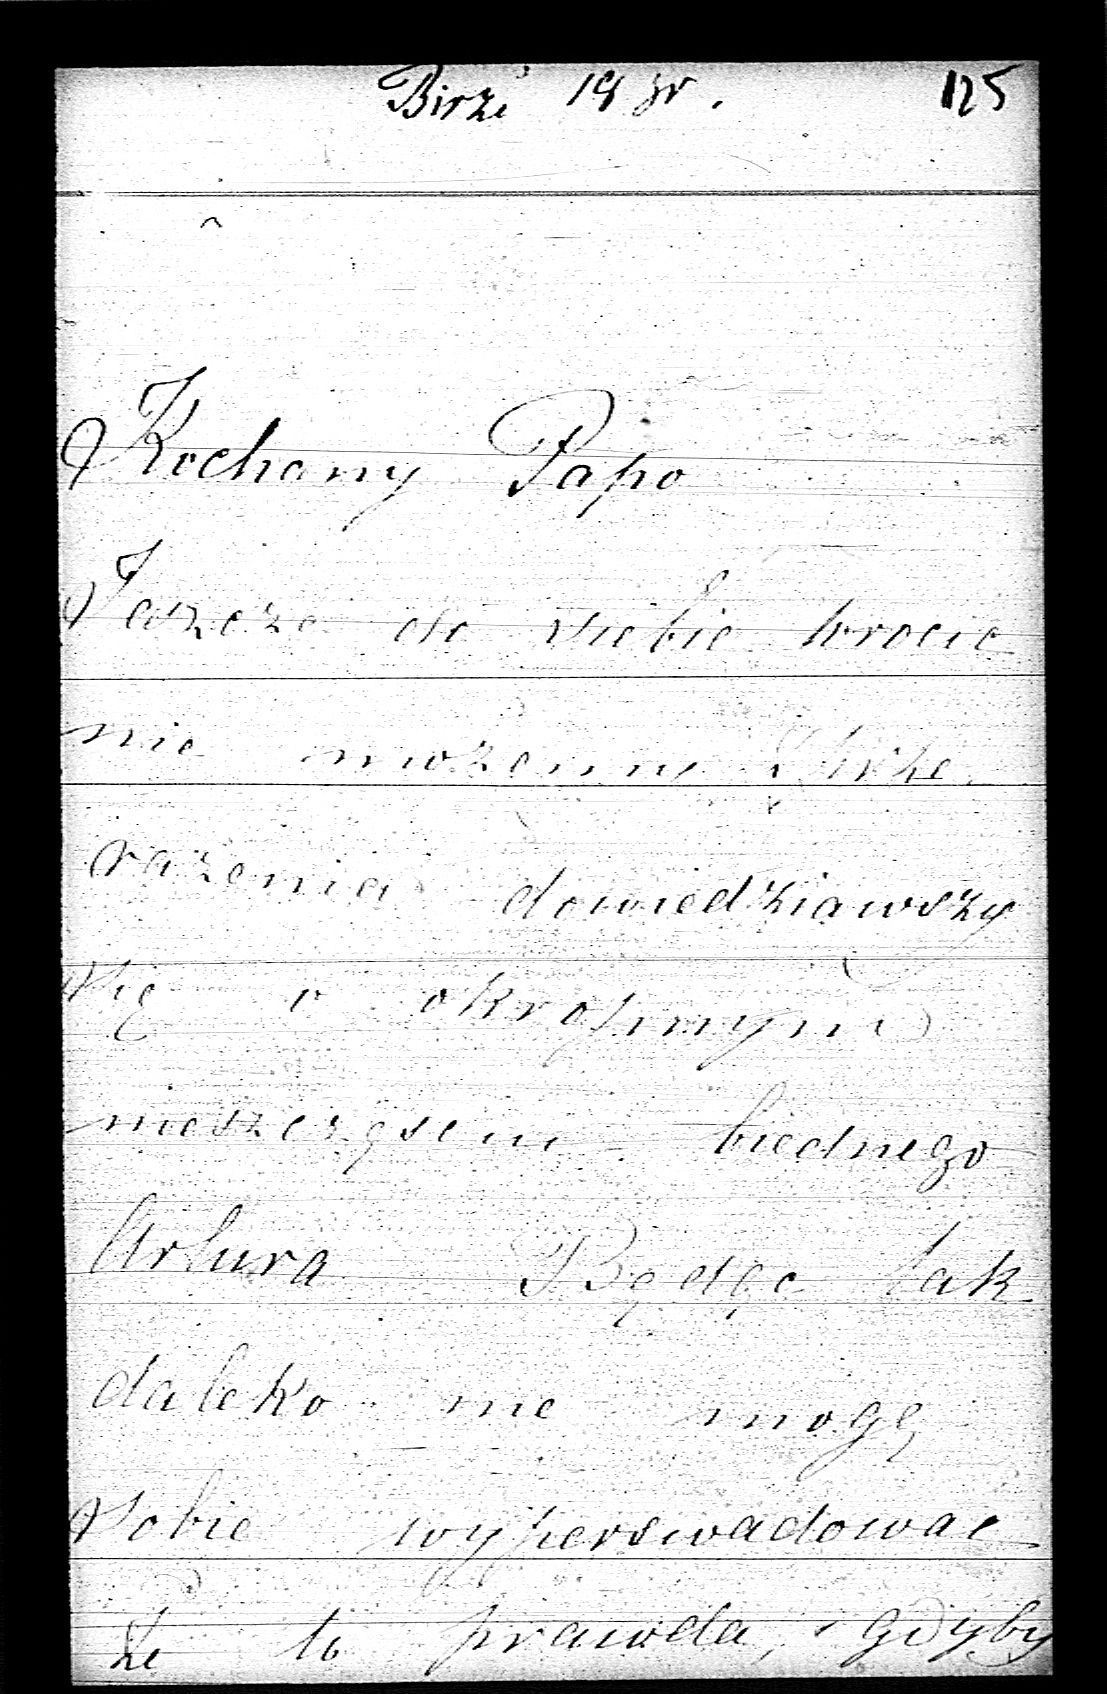 Birżi 19 125
Kochany Papo
Jeszcze do siebie wrocic
nie mozemy z prze
razenia dowiedziawszy
się o okropnym
nieszczęsciu biednego
Artura Będąc tak
daleko nie mogę
sobie wyperswadowac
że to prawda, gdyby